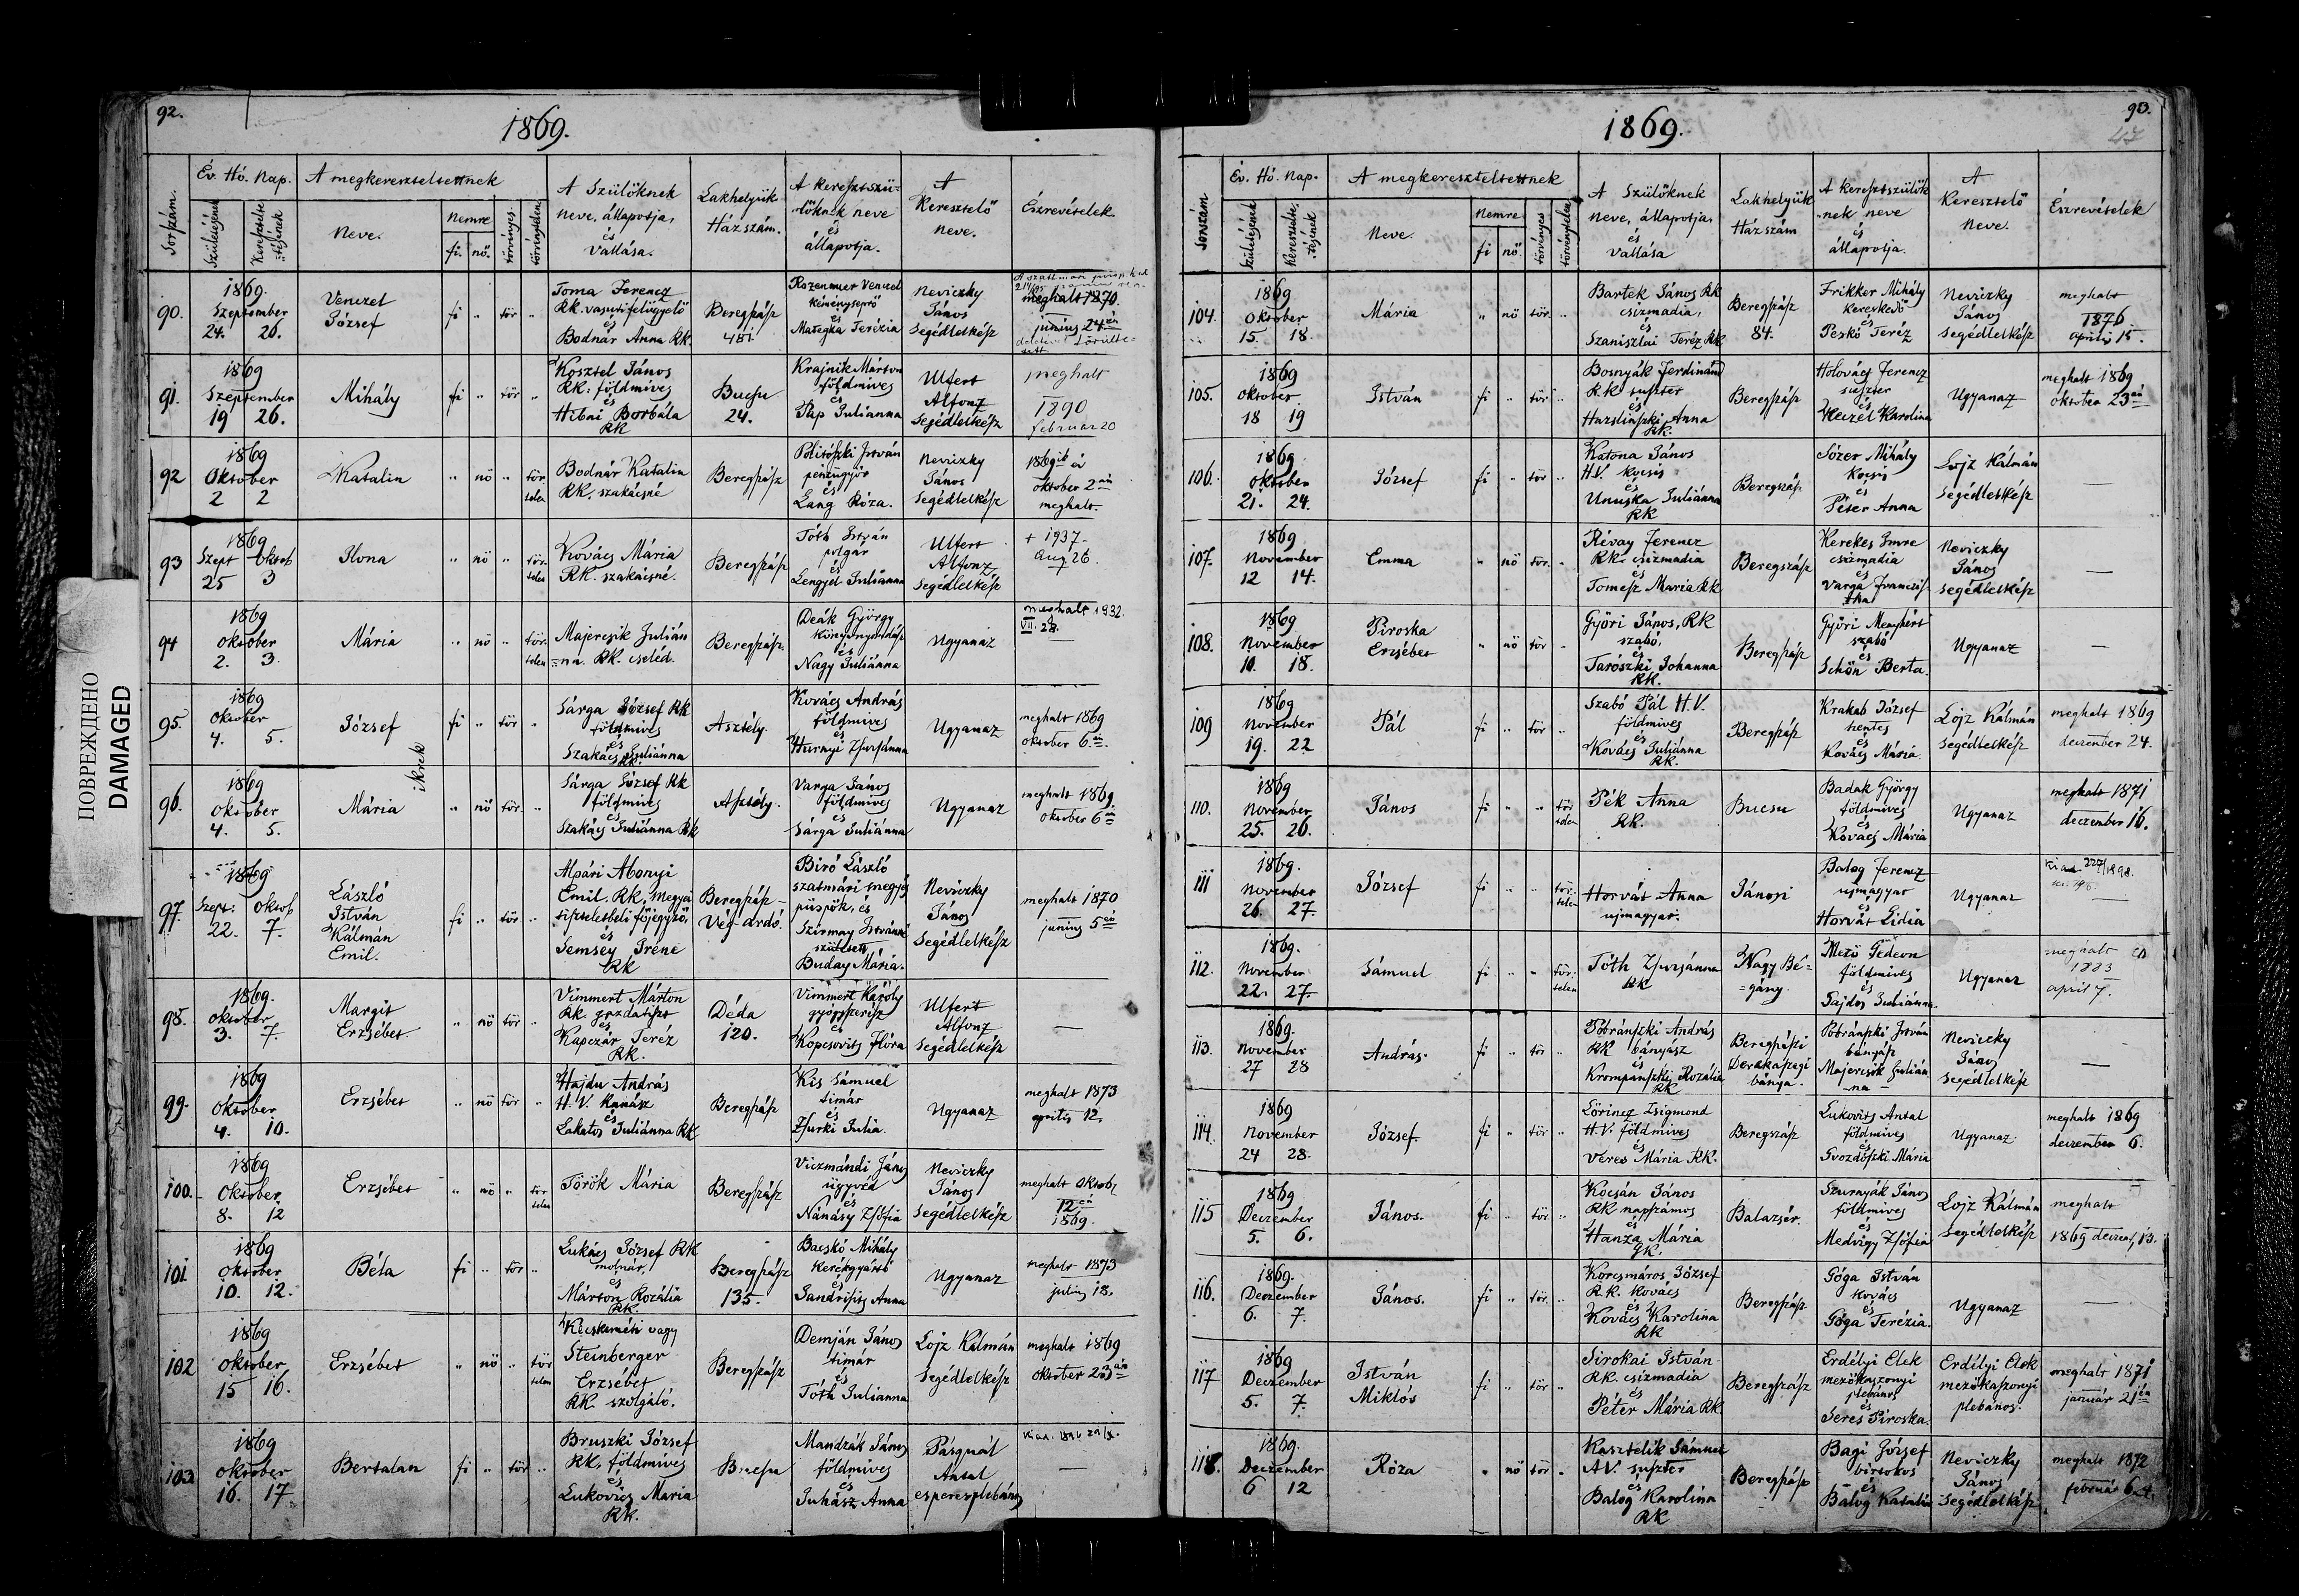 92.
1869.
Sorszám.
Év. Hó. Nap.
Születésének
Keresztelte-
tésének
A megkereszteltetnek
Neve.
Nemre
fi. nő.
törvényes.
törvénytelen
A Szülőknek
neve, állapotja,
és
Vallása.
Lakhelyük
Házszám.
A keresztszü-
lőknek neve
és
állapotja.
A
Keresztelő
neve.
Észrevételek.
90.
1869.
Szeptember
24. 26.
Venczel
József
fi " tör "
Toma Ferencz
RK. vasuti felügyelő
és
Bodnár Anna RK.
Beregszász
481.
Rozenauer Venczel
kéményseprő
és
Mategka Terézia
Neviczky
János
Segédlelkész
meghalt 1870.
június 24én
91.
1869
Szeptember
19 26.
Mihály
fi " tör "
Kosztel János
RK. földmives
és
Hibai Borbála
RK
Bucsu
24.
Krajnik Márton
földmives
és
Pap Julianna
Ulfert
Alfonz
Segédlelkész
meghalt
1890
februar 20
92
1869
Oktober
2 2
Katalin
" nő " tör
telen
Bodnár Katalin
RK. szakácsné
Beregszász
István
pénzügyőr
és
Lang Róza.
Neviczky
János
Segédlelkész
1869ik év
oktober 2án
meghalt.
93
1869
Szept Oktob
25 3
Ilona
" nő " tör.
telen
Kovács Mária
RK. szakácsné.
Beregszász
Tóth István
polgár
és
Lengyel Julianna
Ulfert
Alfonz
Segédlelkész
+ 1937.
Aug 26.
94
1869
Oktober
2. 3.
Mária
" nő " tör.
telen
Majercsik Julián
=na. RK. cseléd.
Beregszász.
Deák György
könyvnyomdász
és
Nagy Juliánna
Ugyanaz
meghalt 1932.
VII. 28.
95.
1869
Oktober
4. 5.
József
ikrek
fi " tör "
Sárga József RK
földmives
és
Szakács Juliánna
RK.
Asztély.
Kovács András
földmives
és
Hurnyi Zsuzsánna
Ugyanaz
meghalt 1869
oktober 6án.
96.
1869
Oktober
4. 5.
Mária
" nő tör. "
Sárga József RK
földmives
és
Szakács Juliánna RK
Asztély.
Varga János
földmives
és
Sárga Juliánna
Ugyanaz
meghalt 1869
oktober 6án
97.
1869
Szept: Oktob
22. 7.
László
István
Kálmán
Emil.
fi " tör. "
Alpári Abonyi
Emil. RK, megyei
tiszteletbeli főjegyző,
és
Semsey Iréne
RK
Beregszász-
Vég-Ardó.
Biró László
szatmári megyés
püspök, és
Szirmay Istvánné
született
Buday Mária.
Neviczky
János
Segédlelkész
meghalt 1870
június 5én
98.
1869.
Oktober
3. 7.
Margit
Erzsébet.
" nő tör "
Vimmert Márton
RK. gazdatiszt
és
Kapczár Teréz
RK.
Déda
120.
Vimmert Károly
gyógyszerész
és
Kopcsovits Flóra
Ulfert
Alfonz
Segédlelkész
—
99.
1869
Oktober
4. 10.
Erzsébet
" nő tör "
Hajdu András
H. V. kanász
és
Lakatos Juliánna RK
Beregszász
Kis Sámuel
timár
és
Zsurki Julia.
Ugyanaz
meghalt 1873
április 12.
100.
1869
Oktober
8. 12
Erzsébet
" nő " tör
telen
Török Mária
Beregszász
Viczmándi János
ügyvéd
és
Nánásy Zsófia
Neviczky
János
Segédlelkész
meghalt Oktob,
12én
1869.
101.
1869
Oktober
10. 12.
Béla
fi " tör "
Lukács József RK
molnár,
és
Márton Rozália
RK.
Beregszász
135.
Bacskó Mihály
kerékgyártó
és
Jandrisits Anna
Ugyanaz
meghalt 1873
julius 18.
102
1869
Oktober
15 16.
Erzsébet
" nő " tör
telen
Kecskeméti vagy
Steinberger
Erzsébet
RK. szolgáló.
Beregszász
Demján János
timár
és
Tóth Julianna
Lojz Kálmán
Segédlelkész
meghalt 1869
oktober 23án
103
1869
Oktober
16. 17.
Bertalan
fi " tör "
Bruszki József
RK, földmives
és
Lukovics Maria
RK.
Bucsu
Mandzák János
földmives
és
Juhász Anna
Pásquál
Antal
esperesplébános
Kiad. 1896 29/X.
—
ПОВРЕЖДЕНО
DAMAGED
93.
47
1869.
Sorszám
Év. Hó. Nap.
Születésének
Keresztelte-
tésének
A megkereszteltetnek
Neve.
Nemre
fi nő.
törvényes
törvénytelen
A Szülőknek
neve, állapotja,
és
Vallása
Lakhelyük
Házszám
A keresztszülők
-nek neve
és
állapotja.
A
Keresztelő
neve.
Észrevételek
104.
1869
Oktober
15 18.
Mária
" nő tör. "
Bartek János RK
csizmadia,
és
Szaniszlai Teréz RK
Beregszász
84.
Frikker Mihály
kereskedő
és
Peskó Teréz
Neviczky
János
Segédlelkész
meghalt
1876
április 15.
105.
1869
Oktober
18 19
István
fi " tör "
Bosnyák Ferdinánd
R.K. suszter
és
Hazslinszki Anna
RK.
Beregszász
Holovács Ferencz
suszter
és
Venczel Karolina
Ugyanaz
meghalt 1869
oktober 23án
106.
1869.
Oktober
21. 24.
József
fi " tör "
Katona János
H.V. kocsis
és
Unuska Juliánna
RK
Beregszász
Józer Mihály
kocsis
és
Péter Anna
Lojz Kálmán
Segédlelkész
—
107.
1869
November
12 14.
Emma
" nő tör. "
Révay Ferencz
RK. csizmadia
és
Tomesz Maria RK
Beregszász
Kerekes Imre
csizmadia
és
Varga Francisz-
ka
Neviczky
János
Segédlelkész
—
108.
1869
November
10. 18.
Piroska
Erzsébet
" nő tör "
Győri János, RK
szabó,
és
Tarószki Johanna
RK.
Beregszász
Győri Menyhért
szabó
és
Schön Berta.
Ugyanaz
—
109
1869
November
19. 22
Pál
fi " tör "
Szabó Pál H.V.
földmives
és
Kovács Juliánna
RK.
Beregszász
Krakab József
hentes
és
Kovács Mária
Lojz Kálmán
Segédlelkész
meghalt 1869
deczember 24.
110.
1869
November
25. 26.
János
fi " " tör
telen
Pék Anna
RK.
Bucsu
Badak György
földmives
és
Kovács Mária
Ugyanaz
meghalt 1871
deczember 16.
111
1869.
November
26. 27.
József
fi " " tör.
telen
Horvát Anna
ujmagyar.
Jánosi
Balog Ferencz
ujmagyar
és
Horvát Lidia
Ugyanaz
Kiad 227/1898.
—
112.
1869.
November
22. 27.
Sámuel
fi " " tör.
telen
Tóth Zsuzsánna
RK
Nagy Bé-
=gány.
Mező Gedeon
földmives
és
Gajdos Juliánna.
Ugyanaz
meghalt
1883
april 7.
113.
1869.
November
27 28
András.
fi " tör "
Pobránszki András
RK bányász
és
Krompaszki Rozália
RK
Beregszászi
Derekaszegi
bánya.
Pobránszki István
bányász
Majercsik Julián
-na-
Neviczky
János
Segédlelkész
—
114.
1869
November
24 28.
József.
fi " tör "
Lőrincz Zsigmond
H.V. földmives
és
Veres Mária RK.
Beregszász
Lukovits Antal
földmives
és
Gvozdószki Mária
Ugyanaz.
meghalt 1869
deczember 6.
115
1869
Deczember
5. 6.
János.
fi " tör. "
Kocsán János
RK napszámos
és
Hanza Mária
GK.
Balazsér.
Szurnyák János
földmives
és
Medvigy Zsófia
Lojz Kálmán
Segédlelkész
meghalt
1869 deczemb. 13.
116.
1869.
Deczember
6. 7.
János.
fi " tör. "
Korcsmáros József
R.K. kovács
és
Kovács Karolina
RK
Beregszász
Góga István
kovács
és
Góga Terézia.
Ugyanaz
—
117
1869
Deczember
5. 7.
István
Miklós
fi " tör "
Sirokai István
RK. csizmadia
és
Péter Mária RK
Beregszász
Erdélyi Elek
mezőkaszonyi
plébános
és
Seres Piroska.
Erdélyi Elek
mezőkaszonyi
plébános.
meghalt 1871
január 21én
118.
1869.
Deczember
6 12
Róza
" nő tör "
Kasztelik Sámuel
AV. suszter
és
Balog Karolina
RK
Beregszász
Bagi József
birtokos
és
Balog Katalin
Neviczky
János
Segédlelkész
meghalt 1872
február 6.